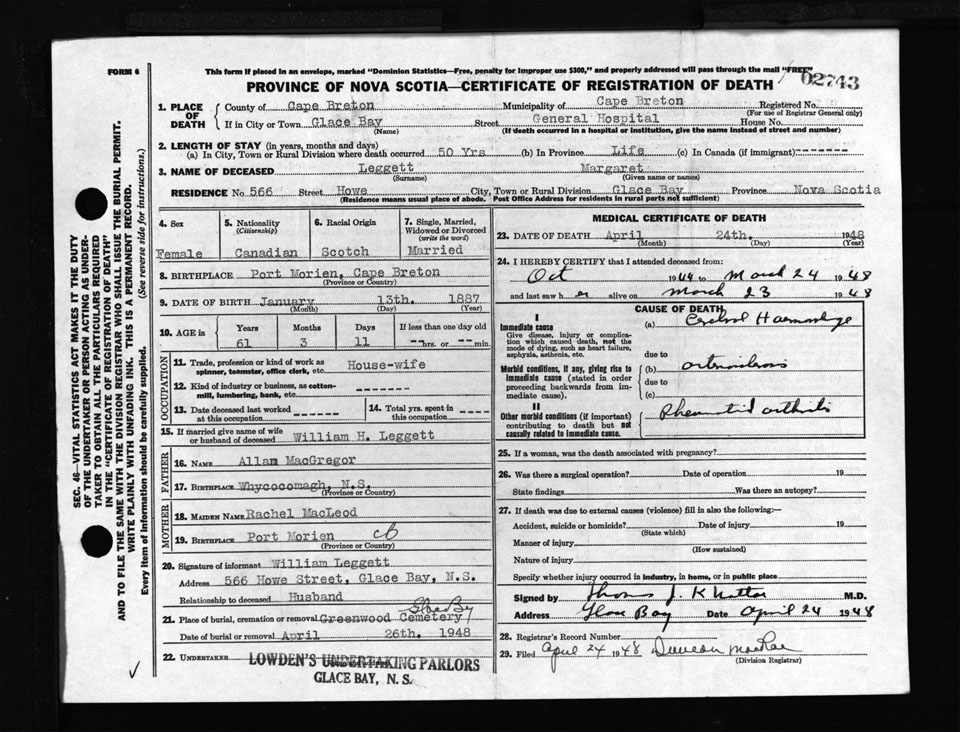 FORM 6
This form if placed in an envelope, marked "Dominion Statistics—Free, penalty for improper use $300," and properly addressed will pass through the mail "FREE"
02743
PROVINCE OF NOVA SCOTIA—CERTIFICATE OF REGISTRATION OF DEATH
SEC. 46—VITAL STATISTICS ACT MAKES IT THE DUTY
OF THE UNDERTAKER OR PERSON ACTING AS UNDER-
TAKER TO OBTAIN ALL THE PARTICULARS REQUIRED
IN THE "CERTIFICATE OF REGISTRATION OF DEATH"
AND TO FILE THE SAME WITH THE DIVISION REGISTRAR WHO SHALL ISSUE THE BURIAL PERMIT.
WRITE PLAINLY WITH UNFADING INK. THIS IS A PERMANENT RECORD.
Every item of information should be carefully supplied. (See reverse side for instructions.)
1. PLACE OF DEATH
County of Cape Breton Municipality of Cape Breton Registered No.
(For use of Registrar General only)
If in City or Town Glace Bay Street General Hospital House No.
(Name) (If death occurred in a hospital or institution, give the name instead of street and number)
2. LENGTH OF STAY (in years, months and days)
(a) In City, Town or Rural Division where death occurred 50 Yrs (b) In Province Life (c) In Canada (if immigrant) -------
3. NAME OF DECEASED Leggett Margaret
(Surname) (Given name or names)
RESIDENCE No. 566 Street Howe City, Town or Rural Division Glace Bay Province Nova Scotia
(Residence means usual place of abode. Post Office Address for residents in rural parts not sufficient)
4. Sex
Female
5. Nationality
(Citizenship)
Canadian
6. Racial Origin
Scotch
7. Single, Married,
Widowed or Divorced
(write the word)
Married
8. BIRTHPLACE Port Morien, Cape Breton
(Province or Country)
9. DATE OF BIRTH January 13th. 1887
(Month) (Day) (Year)
10. AGE in
Years Months Days If less than one day old
61 3 11 --hrs. or --min.
OCCUPATION
11. Trade, profession or kind of work as
spinner, teamster, office clerk, etc. House-wife
12. Kind of industry or business, as cotton-
mill, lumbering, bank, etc. -------
13. Date deceased last worked
at this occupation ------
14. Total yrs. spent in
this occupation ------
15. If married give name of wife
or husband of deceased William H. Leggett
FATHER
16. NAME Allan MacGregor
17. BIRTHPLACE Whycocomagh, N.S.
(Province or Country)
MOTHER
18. MAIDEN NAME Rachel MacLeod
19. BIRTHPLACE Port Morien CB
(Province or Country)
20. Signature of informant William Leggett
Address 566 Howe Street, Glace Bay, N.S.
Relationship to deceased Husband
21. Place of burial, cremation or removal Greenwood Cemetery
Date of burial or removal April 26th. 1948
22. UNDERTAKER LOWDEN'S UNDERTAKING PARLORS
GLACE BAY, N. S.
MEDICAL CERTIFICATE OF DEATH
23. DATE OF DEATH April 24th. 1948
(Month) (Day) (Year)
24. I HEREBY CERTIFY that I attended deceased from:
Oct 1944 to March 24 1948
and last saw her alive on March 23 1948
CAUSE OF DEATH
I
Immediate cause
Give disease, injury or complica-
tion which caused death, not the
mode of dying, such as heart failure,
asphyxia, asthenia, etc.
(a) Cerebral Haemorrhage
due to
Morbid conditions, if any, giving rise to
immediate cause (stated in order
proceeding backwards from im-
mediate cause).
(b) arteriosclerosis
due to
(c)
II
Other morbid conditions (if important)
contributing to death but not
causally related to immediate cause.
Rheumatoid arthritis
25. If a woman, was the death associated with pregnancy?
26. Was there a surgical operation? Date of operation 19
State findings Was there an autopsy?
27. If death was due to external causes (violence) fill in also the following:—
Accident, suicide or homicide? Date of injury 19
(State which)
Manner of injury
(How sustained)
Nature of injury
Specify whether injury occurred in industry, in home, or in public place
Signed by Thomas J. M.D.
Address Glace Bay Date April 24 1948
28. Registrar's Record Number
29. Filed April 24 1948 Duncan MacRae
(Division Registrar)